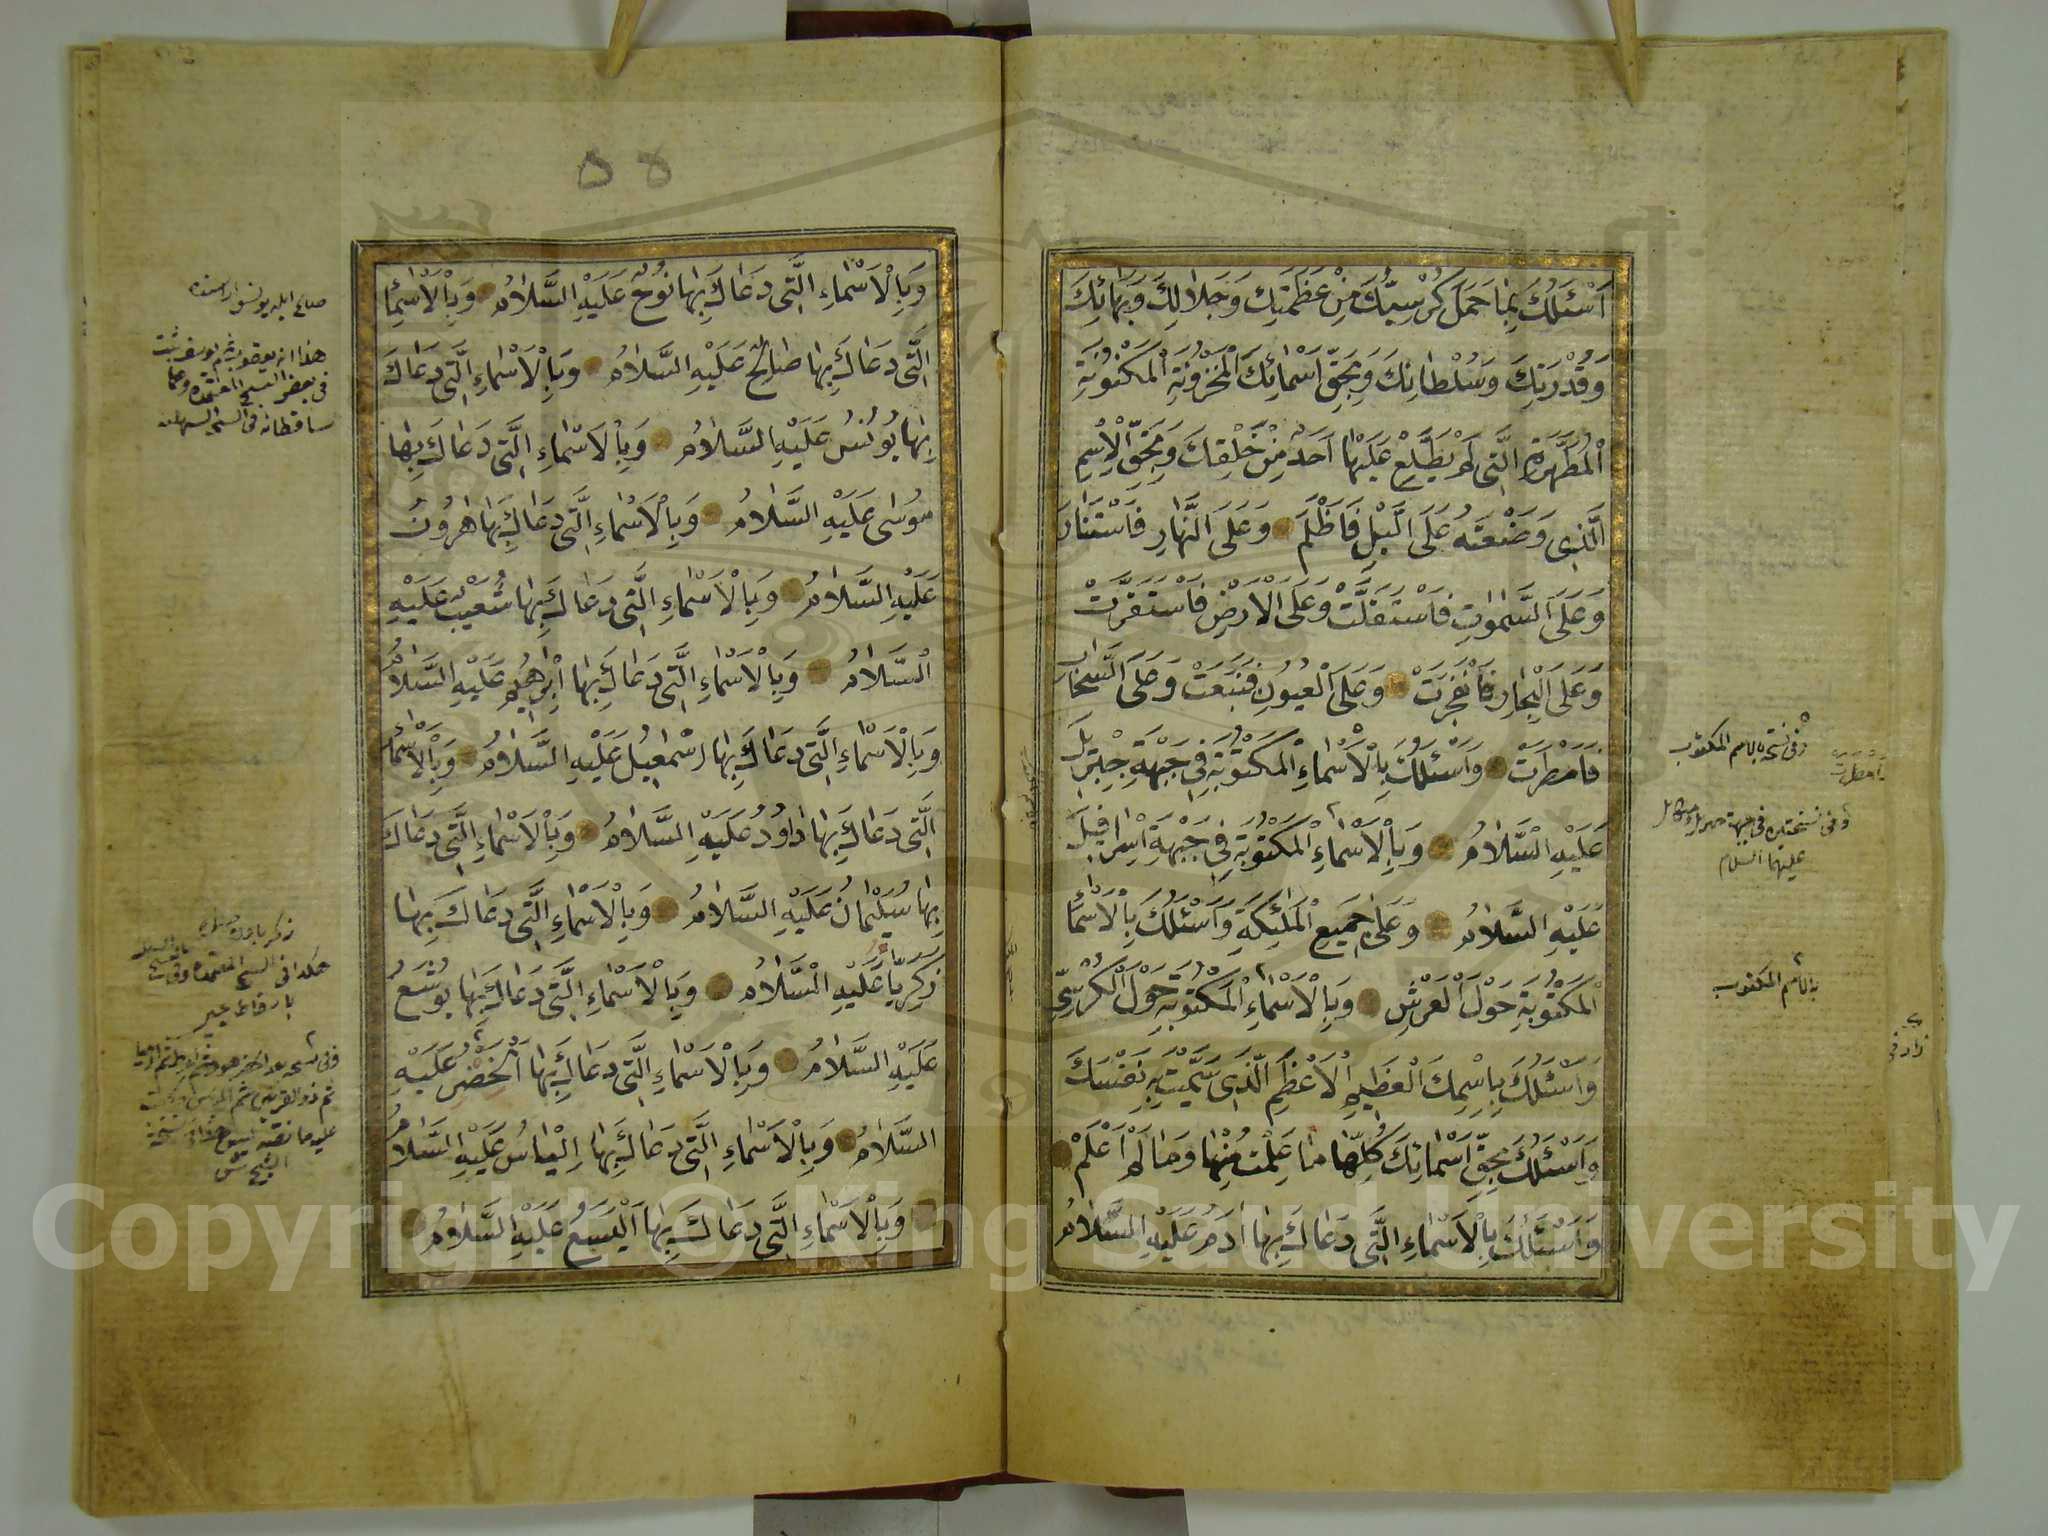 اَسْئَلُكَ بِمَا حَمَلَ كُرْسِيُّكَ مِنْ عَظَمَتِكَ وَجَلَالِكَ وَبَهَائِكَ
وَقُدْرَتِكَ وَسُلْطَانِكَ وَبِحَقِّ اَسْمَائِكَ الْمَخْزُونَةِ الْمَكْنُونَةِ
الْمُطَهَّرَةِ الَّتِى لَمْ يَطَّلِعْ عَلَيْهَا اَحَدٌ مِنْ خَلْقِكَ وَبِحَقِّ الْاِسْمِ
الَّذِى وَضَعْتَهُ عَلَى الَّيْلِ فَاَظْلَمَ وَعَلَى النَّهَارِ فَاسْتَنَارَ
وَعَلَى السَّمٰوَاتِ فَاسْتَقَلَّتْ وَعَلَى الْاَرْضِ فَاسْتَقَرَّتْ
وَعَلَى الْبِحَارِ فَانْفَجَرَتْ وَعَلَى الْعُيُونِ فَنَبَعَتْ وَعَلَى السَّحَابِ
فَاَمْطَرَتْ وَاَسْئَلُكَ بِالْاَسْمَاءِ الْمَكْتُوبَةِ فِى جَبْهَةِ جِبْرِيلَ
عَلَيْهِ السَّلَامُ وَبِالْاَسْمَاءِ الْمَكْتُوبَةِ فِى جَبْهَةِ اِسْرَافِيلَ
عَلَيْهِ السَّلَامُ وَعَلَى جَمِيعِ الْمَلٰئِكَةِ وَاَسْئَلُكَ بِالْاَسْمَاءِ
الْمَكْتُوبَةِ حَوْلَ الْعَرْشِ وَبِالْاَسْمَاءِ الْمَكْتُوبَةِ حَوْلَ الْكُرْسِيِّ
وَاَسْئَلُكَ بِاسْمِكَ الْعَظِيمِ الْاَعْظَمِ الَّذِى سَمَّيْتَ بِهِ نَفْسَكَ
وَاَسْئَلُكَ بِحَقِّ اَسْمَائِكَ كُلِّهَا مَا عَلِمْتُ مِنْهَا وَمَا لَمْ اَعْلَمْ
وَاَسْئَلُكَ بِالْاَسْمَاءِ الَّتِى دَعَاكَ بِهَا اٰدَمُ عَلَيْهِ السَّلَامُ
وفى نسخة بالاسم المكتوب
عليهما السلام
بالاسم المكتوب
٥٨
وَبِالْاَسْمَاءِ الَّتِى دَعَاكَ بِهَا نُوحٌ عَلَيْهِ السَّلَامُ وَبِالْاَسْمَاءِ
الَّتِى دَعَاكَ بِهَا صَالِحٌ عَلَيْهِ السَّلَامُ وَبِالْاَسْمَاءِ الَّتِى دَعَاكَ
بِهَا يُونُسُ عَلَيْهِ السَّلَامُ وَبِالْاَسْمَاءِ الَّتِى دَعَاكَ بِهَا
مُوسٰى عَلَيْهِ السَّلَامُ وَبِالْاَسْمَاءِ الَّتِى دَعَاكَ بِهَا هَارُونُ
عَلَيْهِ السَّلَامُ وَبِالْاَسْمَاءِ الَّتِى دَعَاكَ بِهَا شُعَيْبٌ عَلَيْهِ
السَّلَامُ وَبِالْاَسْمَاءِ الَّتِى دَعَاكَ بِهَا اِبْرٰهِيمُ عَلَيْهِ السَّلَامُ
وَبِالْاَسْمَاءِ الَّتِى دَعَاكَ بِهَا اِسْمٰعِيلُ عَلَيْهِ السَّلَامُ وَبِالْاَسْمَاءِ
الَّتِى دَعَاكَ بِهَا دَاوُدُ عَلَيْهِ السَّلَامُ وَبِالْاَسْمَاءِ الَّتِى دَعَاكَ
بِهَا سُلَيْمَانُ عَلَيْهِ السَّلَامُ وَبِالْاَسْمَاءِ الَّتِى دَعَاكَ بِهَا
زَكَرِيَّا عَلَيْهِ السَّلَامُ وَبِالْاَسْمَاءِ الَّتِى دَعَاكَ بِهَا يُوشَعُ
عَلَيْهِ السَّلَامُ وَبِالْاَسْمَاءِ الَّتِى دَعَاكَ بِهَا الْخَضِرُ عَلَيْهِ
السَّلَامُ وَبِالْاَسْمَاءِ الَّتِى دَعَاكَ بِهَا اِلْيَاسُ عَلَيْهِ السَّلَامُ
وَبِالْاَسْمَاءِ الَّتِى دَعَاكَ بِهَا اَلْيَسَعُ عَلَيْهِ السَّلَامُ
فى بعض النسخ المعتمدة
هكذا فى النسخ المعتمدة
Copyright © King Saud University